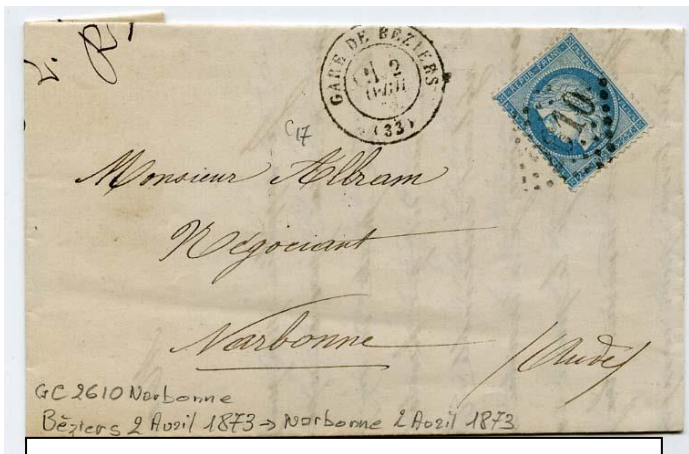 GARE DE BEZIERS
2
(33)
REPUB. FRANC.
10
C17
Monsieur Allram
Négociant
Narbonne
(Aude)
GC 2610 Narbonne
Béziers 2 Avril 1873 → Narbonne 2 Avril 1873